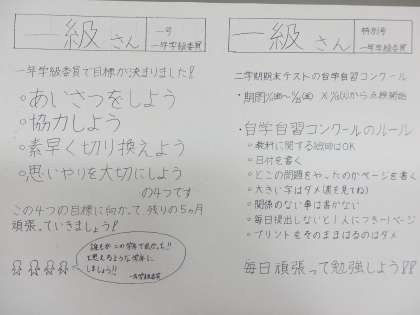 一級さん
一号
一年学級委員
一年学級委員で目標が決まりました!!
○あいさつをしよう
○協力しよう
○素早く切り換えよう
○思いやりを大切にしよう
の4つです
この4つの目標に向かって残りの5ヵ月
頑張っていきましょう!
誰もがこの学年で
と思えるような学年に
しましょう!!
一年学級委員
一級さん
特別号
一年学級委員
二学期期末テストの自学自習コンクール
・期間
から点検開始
・自学自習コンクールのルール
○教材に関する絵はOK
○日付を書く
○どこの問題をやったのかページを書く
○大きい字はダメ(裏を見てね)
○関係のない事は書かない
○毎日提出しないと1人につき-1ページ
○プリントをそのままはるのはダメ
毎日頑張って勉強しよう!!